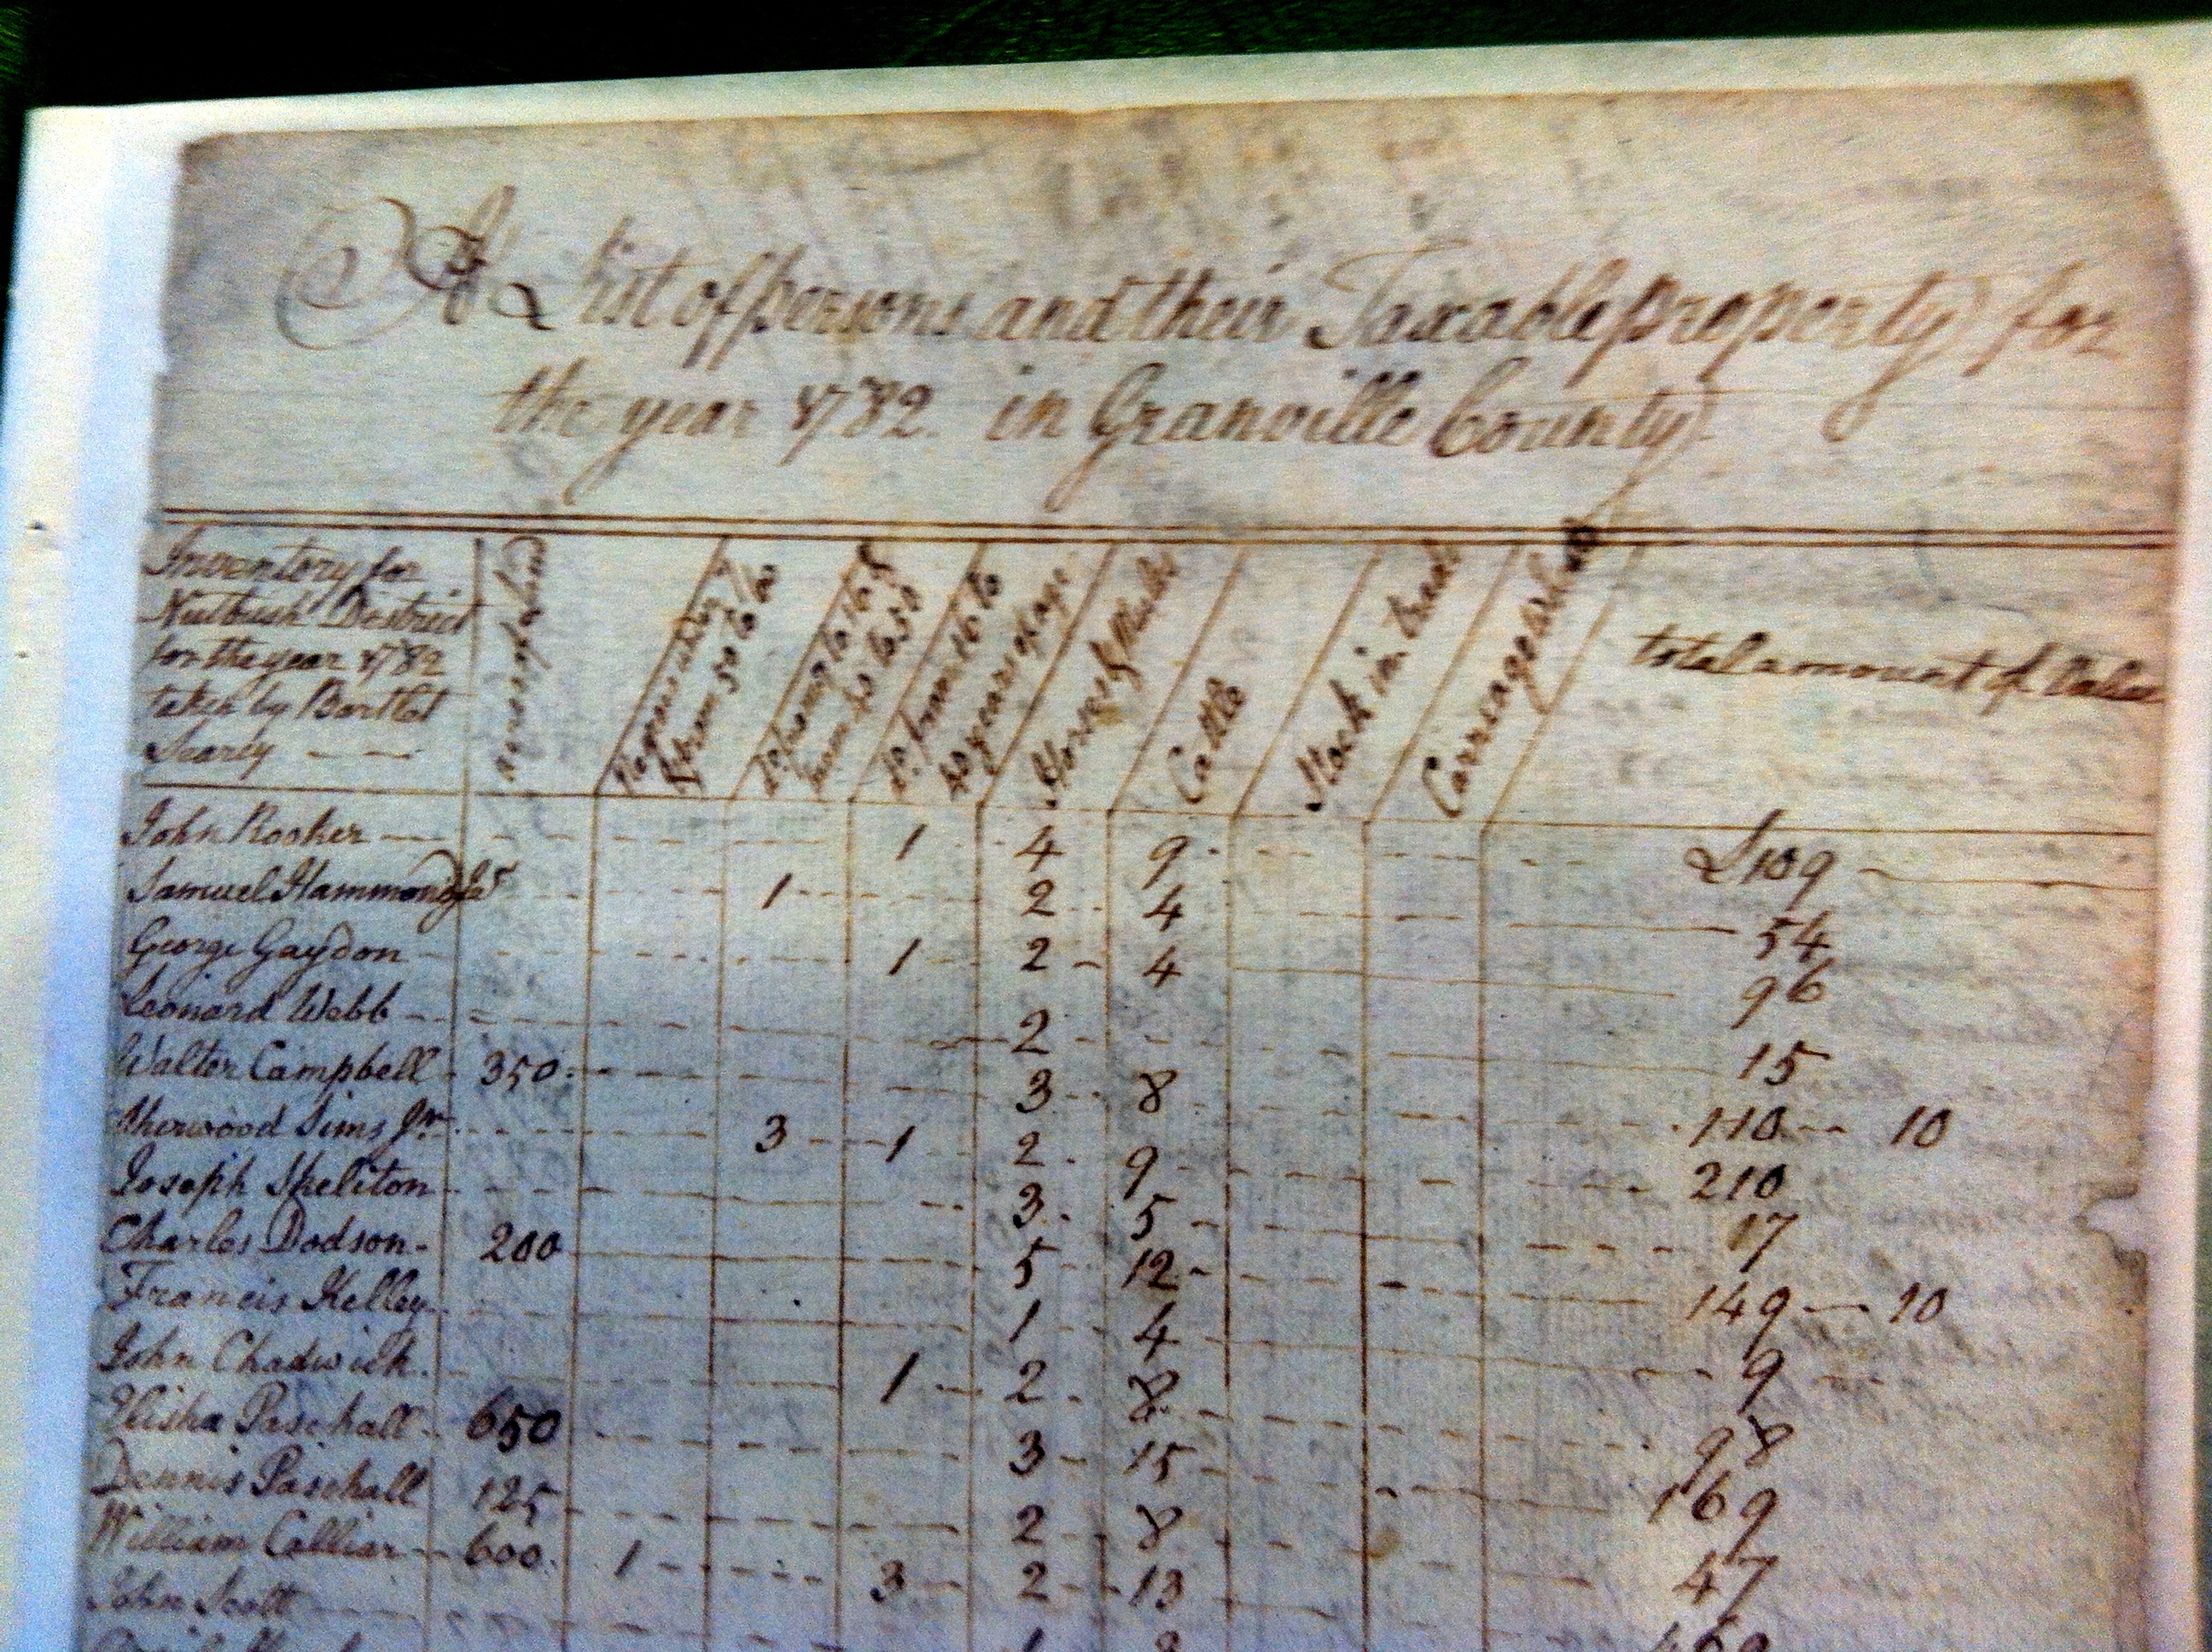 A List of persons and their Taxable property for
the year 1782. in Granville County
Inventory for
Nutbush District
for the year 1782
taken by Bartlet
Searcy
acres of land
from 50 to 60
Do. from 16 to
40 years of age
Horses & Mules
Cattle
Stock in trade
Carriage Wheels
total amount of Value
John Rooker 1 4 9 £109
Samuel Hammond Jr 1 2 4 54
George Gaydon 1 2 4 96
Leonard Webb 2 15
Walter Campbell 350 3 8 110 10
Sherwood Sims Jr. 3 1 2 9 210
Joseph Skeliton 3 5 17
Charles Dodson 200 5 12 149 10
Francis Kelley 1 4 9
John Chadwick 1 2 8 98
Elisha Paschall 650 3 15 169
Dennis Paschall 125 2 8 47
William Calliar 600 1 3 2 13
John Scott 1